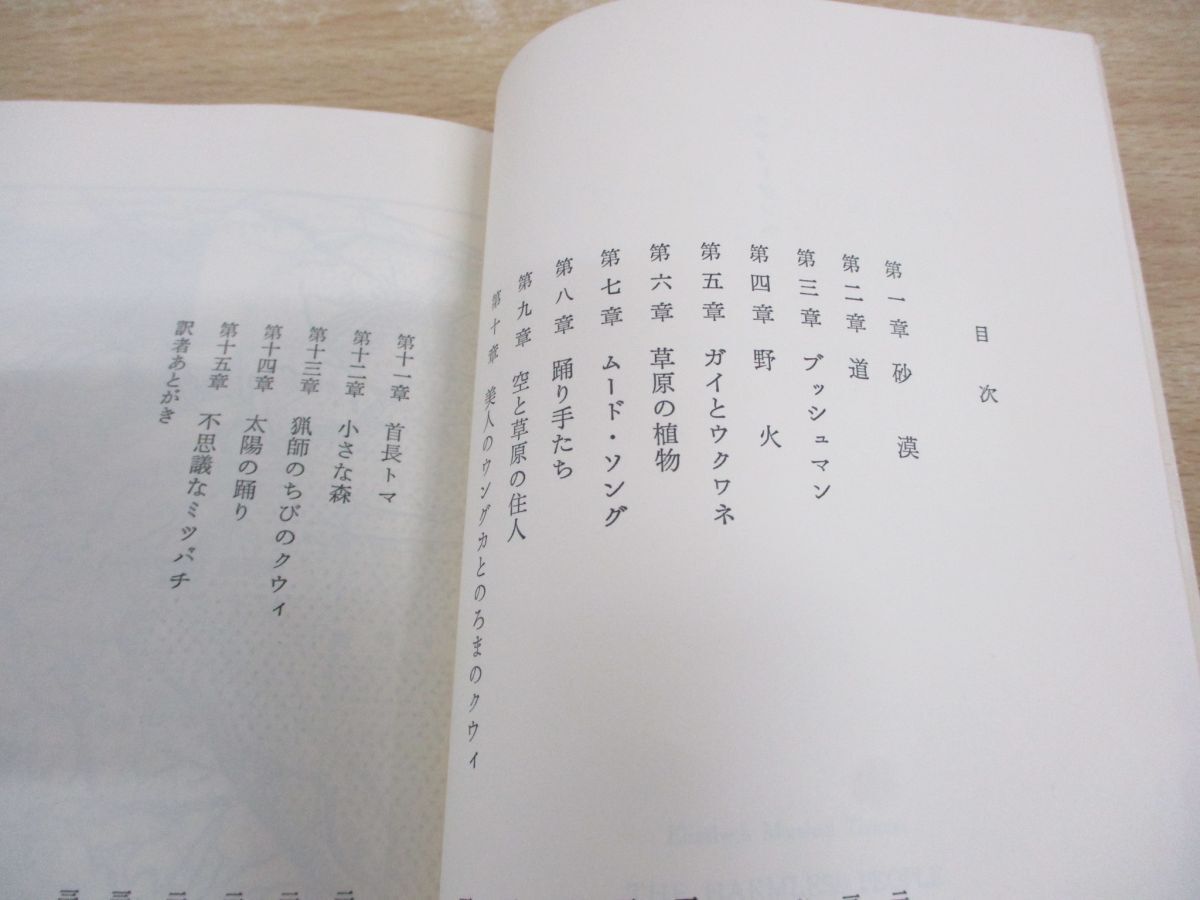 目次
第一章 砂漠
第二章 道
第三章 ブッシュマン
第四章 野火
第五章 ガイとウクワネ
第六章 草原の植物
第七章 ムード・ソング
第八章 踊り手たち
第九章 空と草原の住人
第十章 美人のウングカとのろまのクウィ
第十一章 首長トマ
第十二章 小さな森
第十三章 猟師のちびのクウィ
第十四章 太陽の踊り
第十五章 不思議なミツバチ
訳者あとがき